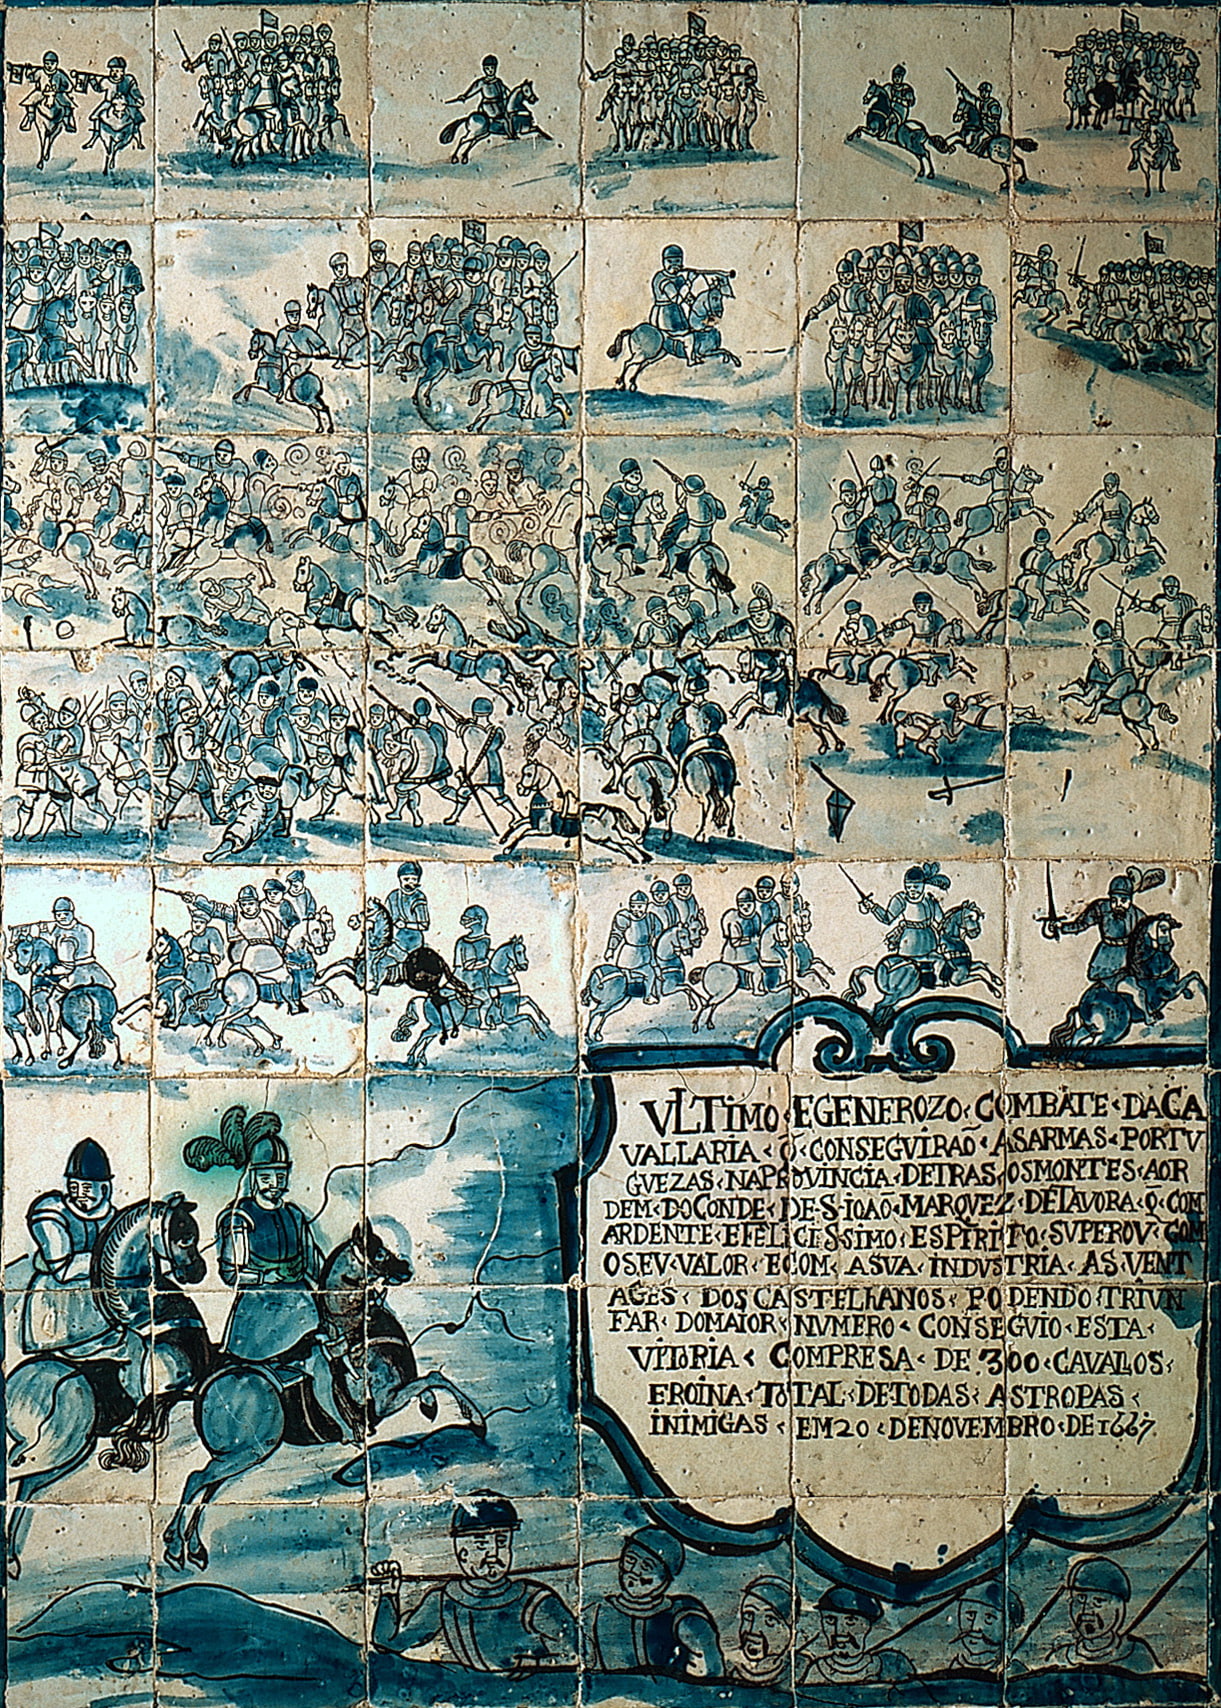 VLTIMO‹EGENEROZO‹COMBATE‹DACA
VALLARIA‹Q̃‹CONSEGVIRAÕ‹ASARMAS‹PORTV
GVEZAS‹NAPROVINCIA‹DETRAS‹OSMONTES‹AOR
DEM‹DOCONDE‹DE‹S‹IOAÕ‹MARQVEZ‹DETAVORA‹Q̃‹COM
ARDENTE‹EFELICISSIMO‹ESPIRITO‹SVPEROV‹COM
OSEV‹VALOR‹ECOM‹ASVA‹INDVSTRIA‹AS‹VENT
AGES‹DOS‹CASTELHANOS‹PODENDO‹TRIVN
FAR‹DOMAIOR‹NVMERO‹CONSEGVIO‹ESTA‹
VITORIA‹COMPRESA‹DE‹300‹CAVALLOS‹
EROINA‹TOTAL‹DETODAS‹ASTROPAS‹
INIMIGAS‹EM20‹DENOVEMBRO‹DE1667